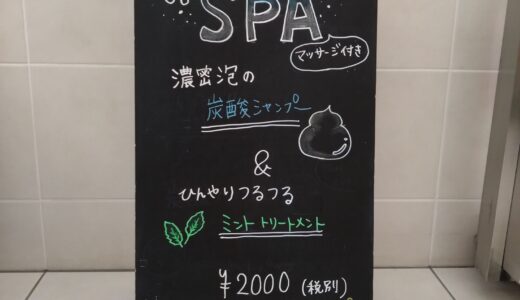 SPA
マッサージ付き
濃密泡の
炭酸シャンプー
&
ひんやりつるつる
ミントトリートメント
¥2000 (税別)